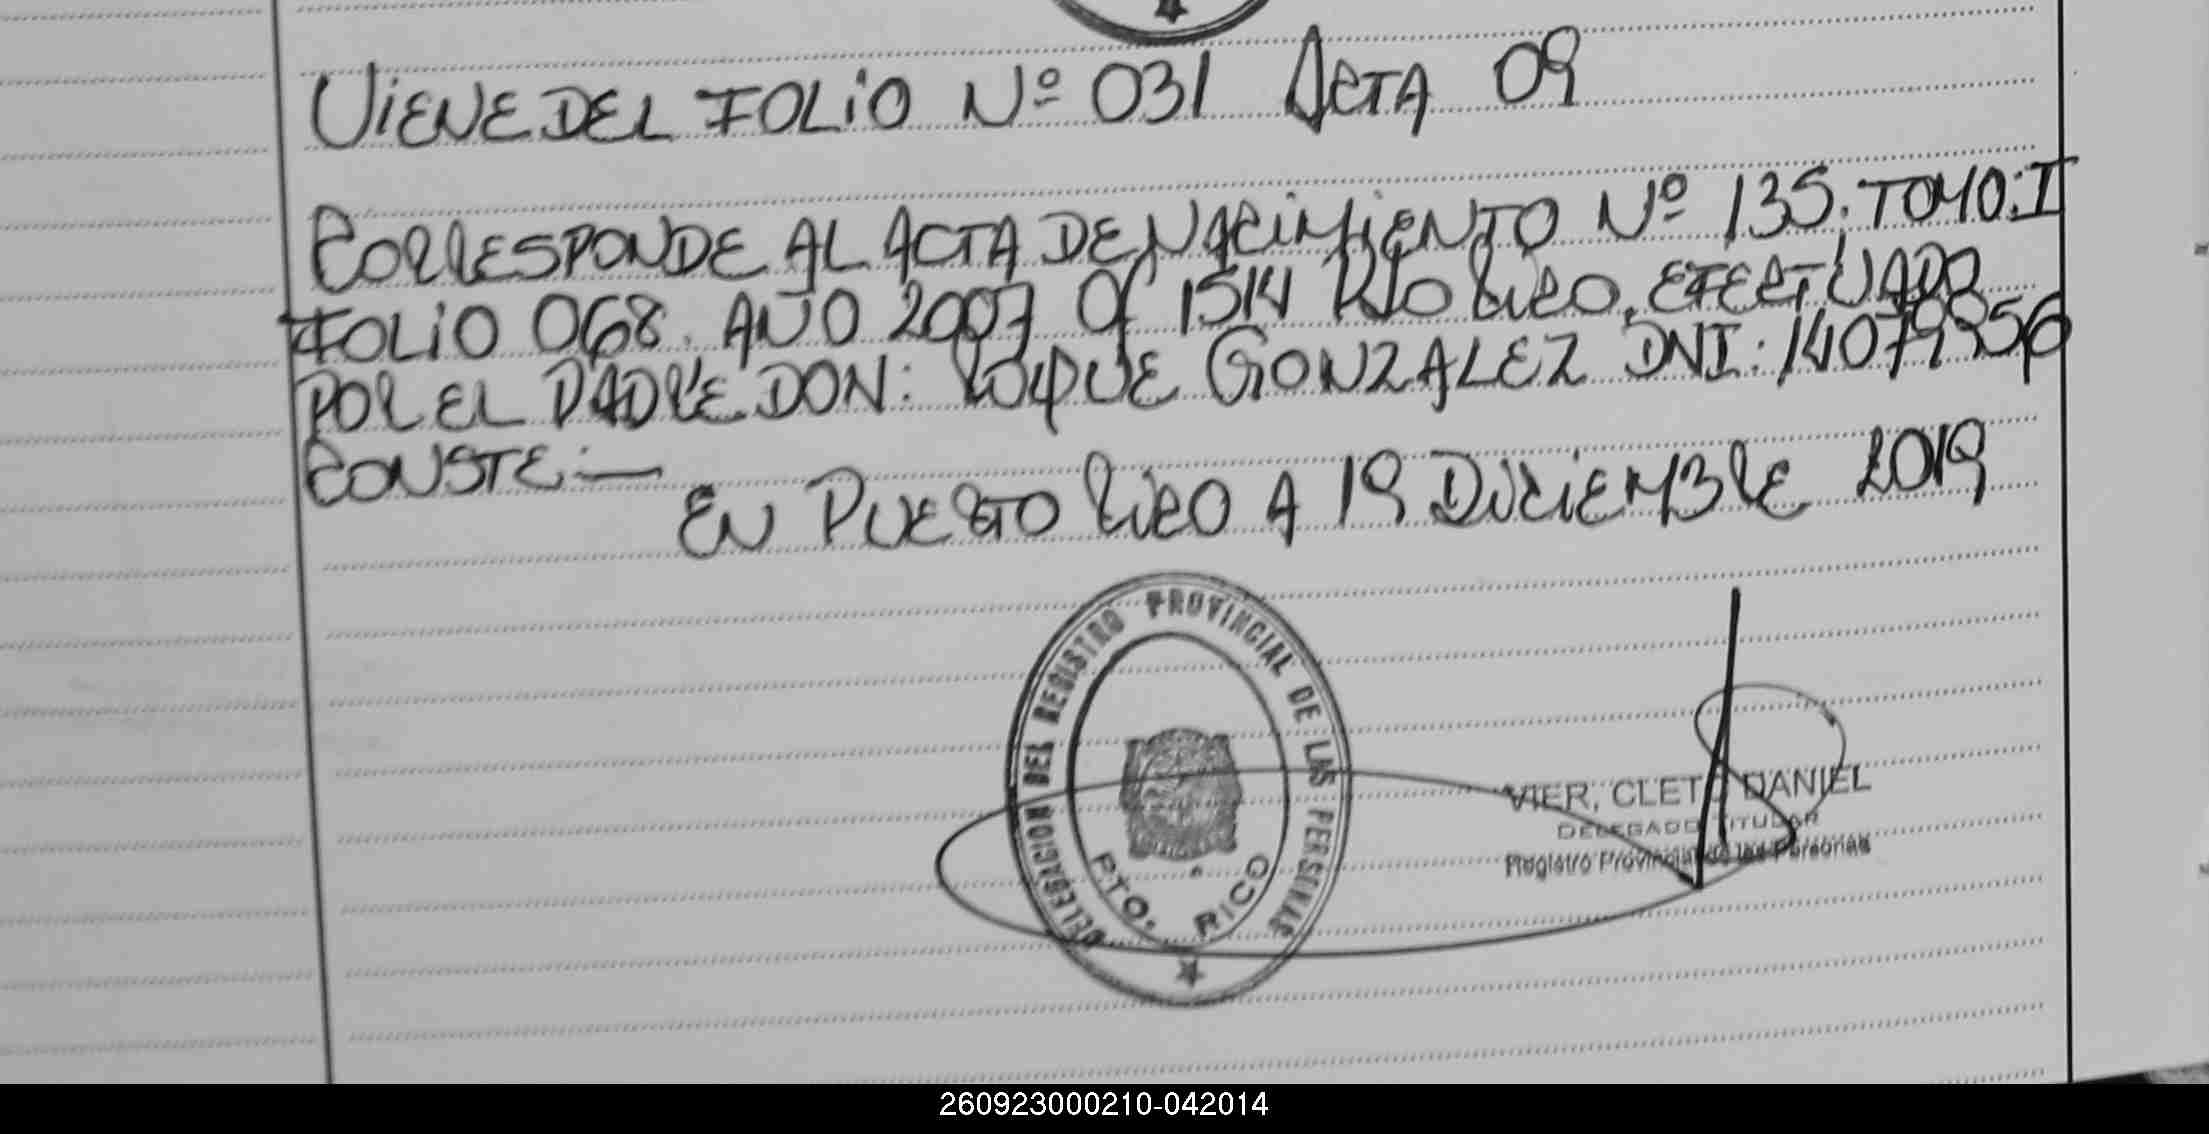 VIENE DEL FOLIO Nº 031 ACTA 09
CORRESPONDE AL ACTA DE NACIMIENTO Nº 135. TOMO: I
FOLIO 068. AÑO 2007 Of 1514 Pto Rico, EFECTUADO
POR EL PADRE DON: ROQUE GONZALEZ DNI: 14079956
CONSTE:—
EN PUERTO RICO A 19 DICIEMBRE 2019
DELEGACION DEL REGISTRO PROVINCIAL DE LAS PERSONAS
PTO. RICO
VIER, CLETO DANIEL
DELEGADO TITULAR
Registro Provincial de las Personas
260923000210-042014